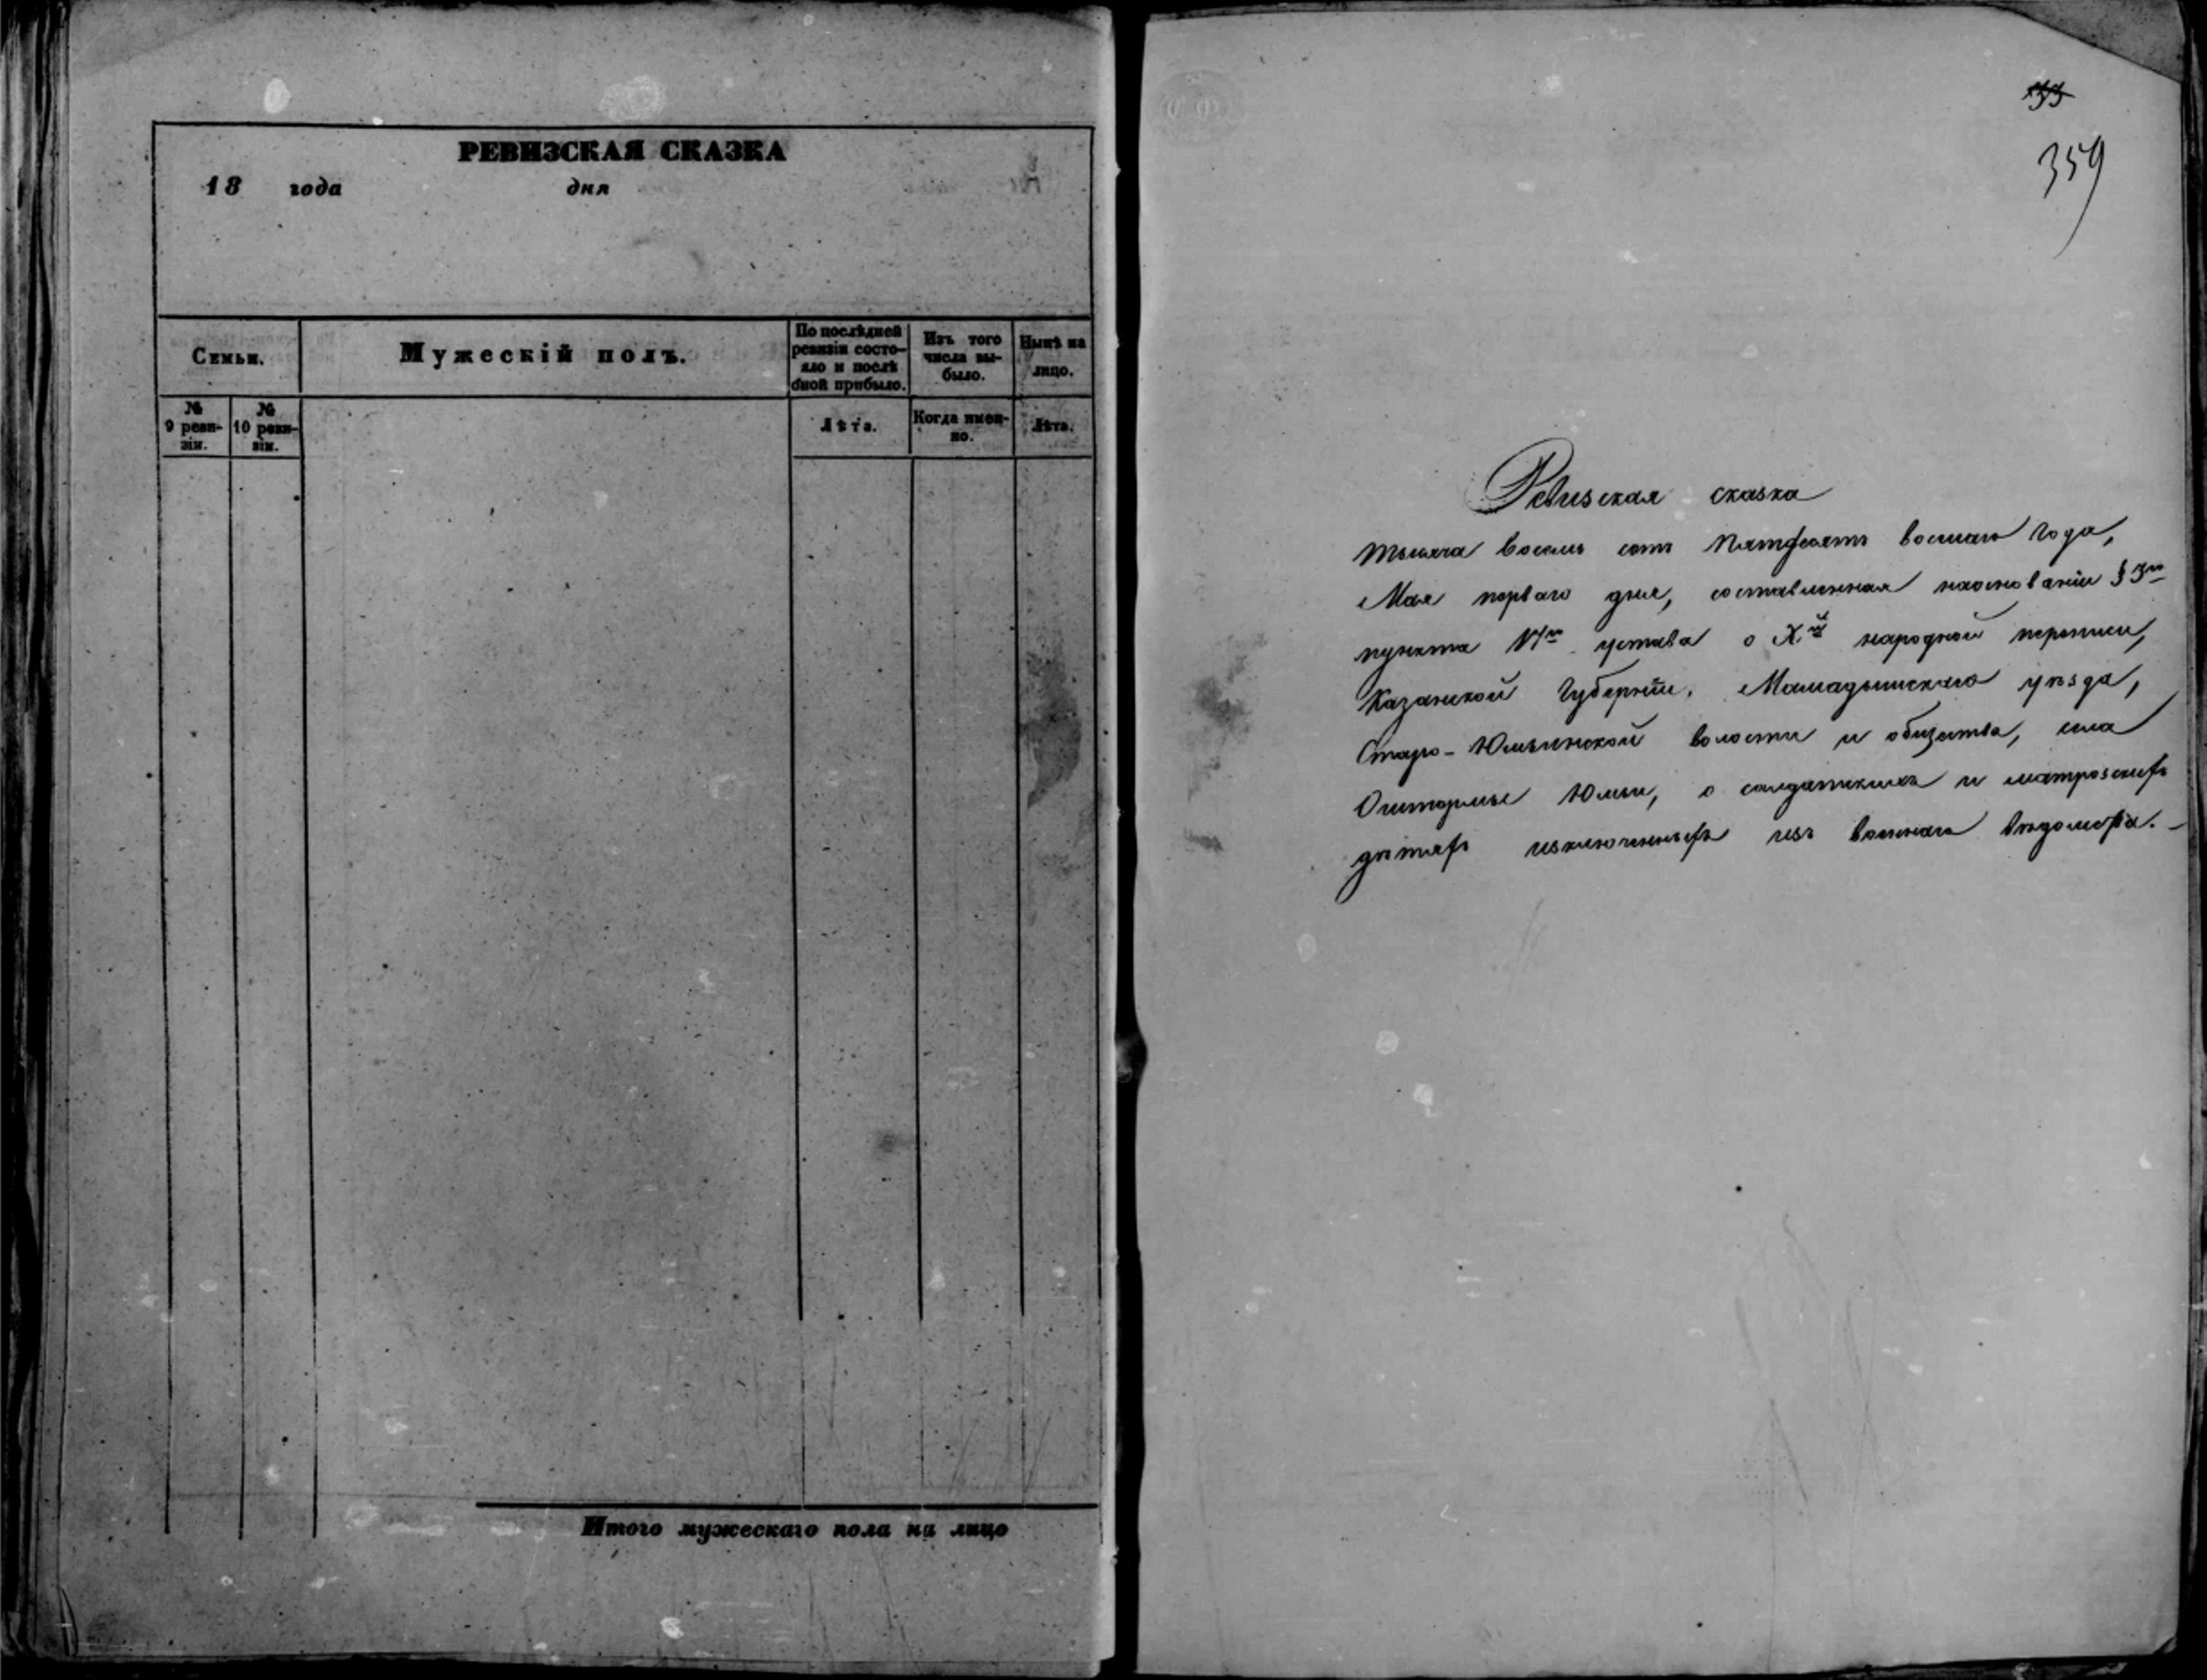 РЕВИЗСКАЯ СКАЗКА
18 года дня
Семьи.
Мужескій полъ.
По послѣдней
ревизіи состо-
яло и послѣ
оной прибыло.
Изъ того
числа вы-
было.
Нынѣ на
лицо.
№
9 реви-
зіи.
№
10 реви-
зіи.
Лѣта.
Когда имен-
но.
Лѣта.
Итого мужескаго пола на лицо
33
359
Ревизская сказка
тысяча восемь сотъ пятьдесятъ восьмаго года,
Мая перваго дня, составленная наоснованіи § 3го
пункта 17го устава о Хй народной переписи,
Казанской Губерніи, Мамадышскаго уѣзда,
Старо-Юмьинской волости и общества, села
Юмьи, о солдатскихъ и матрозскихъ
дѣтяхъ изключенныхъ изъ военнаго вѣдомства.